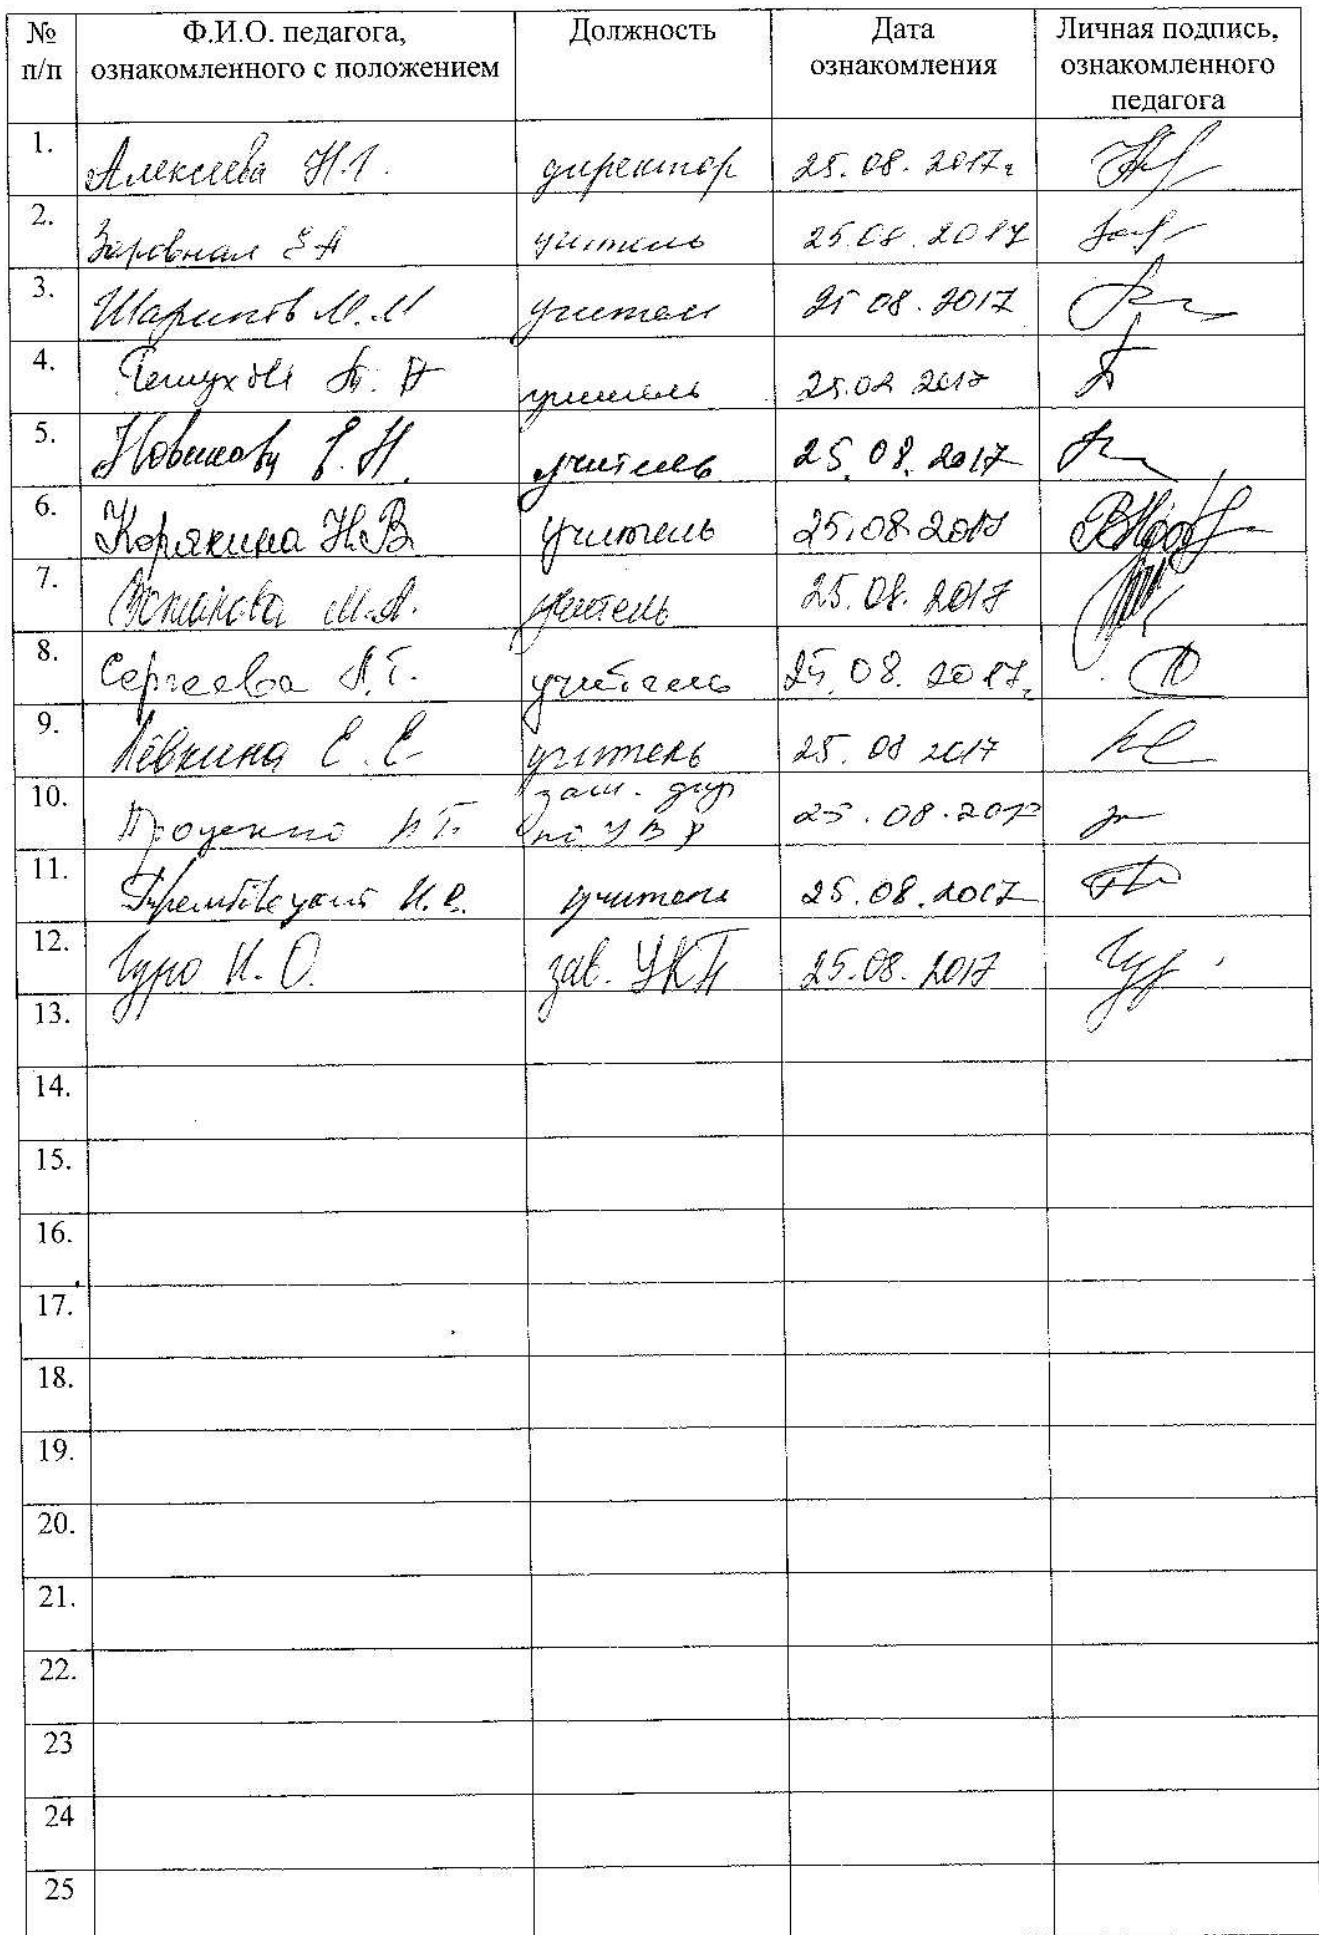 № п/п Ф.И.О. педагога, ознакомленного с положением Должность Дата ознакомления Личная подпись, ознакомленного педагога
1. Алексеева Н.Г. директор 25.08.2017г
2. учитель 25.08.2017
3. М.М учитель 25 08.2017
4. учитель 25.08 2017
5. Новикова Е.Н. учитель 25.08.2017
6. Корякина Н.В. учитель 25.08.2017
7. М.А. учитель 25.08.2017
8. Сергеева Л.Г. учитель 25.08.2017г
9. Лёвкина Е.Е учитель 25.08 2017
10. Проценко зам. дир по УВР 25.08.2017
11. учитель 25.08.2017
12. Гуро И.О. зав. УКП 25.08.2017
13.
14.
15.
16.
17.
18.
19.
20.
21.
22.
23
24
25